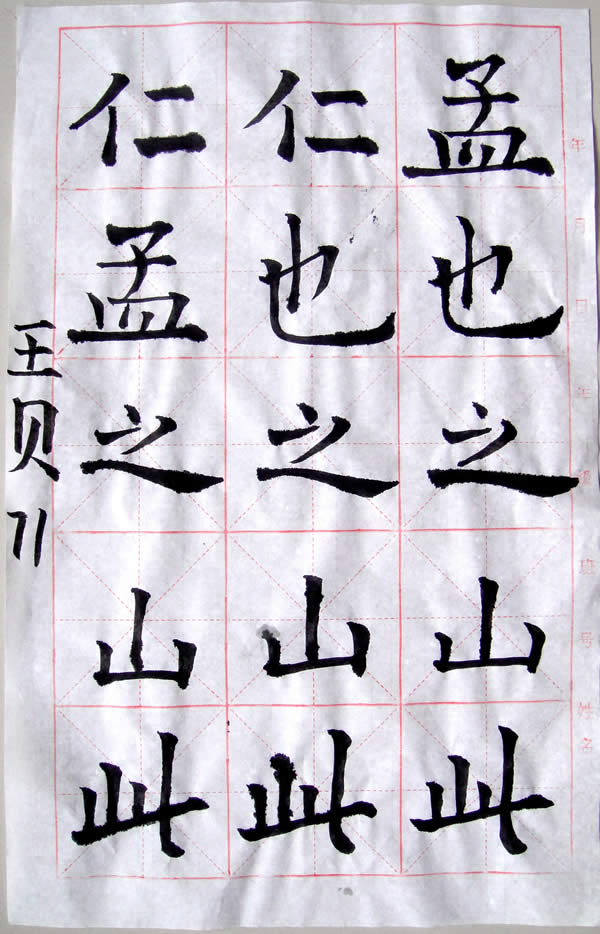 年 月 日 年 班 号 姓名
孟也之山此
仁也之山此
仁孟之山此
王贝